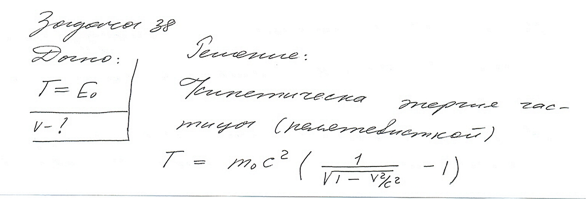 Задача 38
Дано:
T = E₀
v - ?
Решение:
Кинетическа энергия час-
тицы (релятевисткой)
T = m₀c² ( 1 / √(1 - v²/c²) - 1)